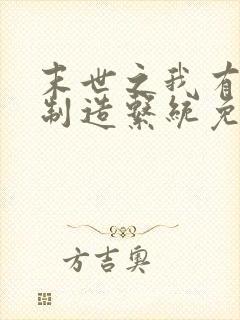 末世之我有
制造系统免
方吉奥